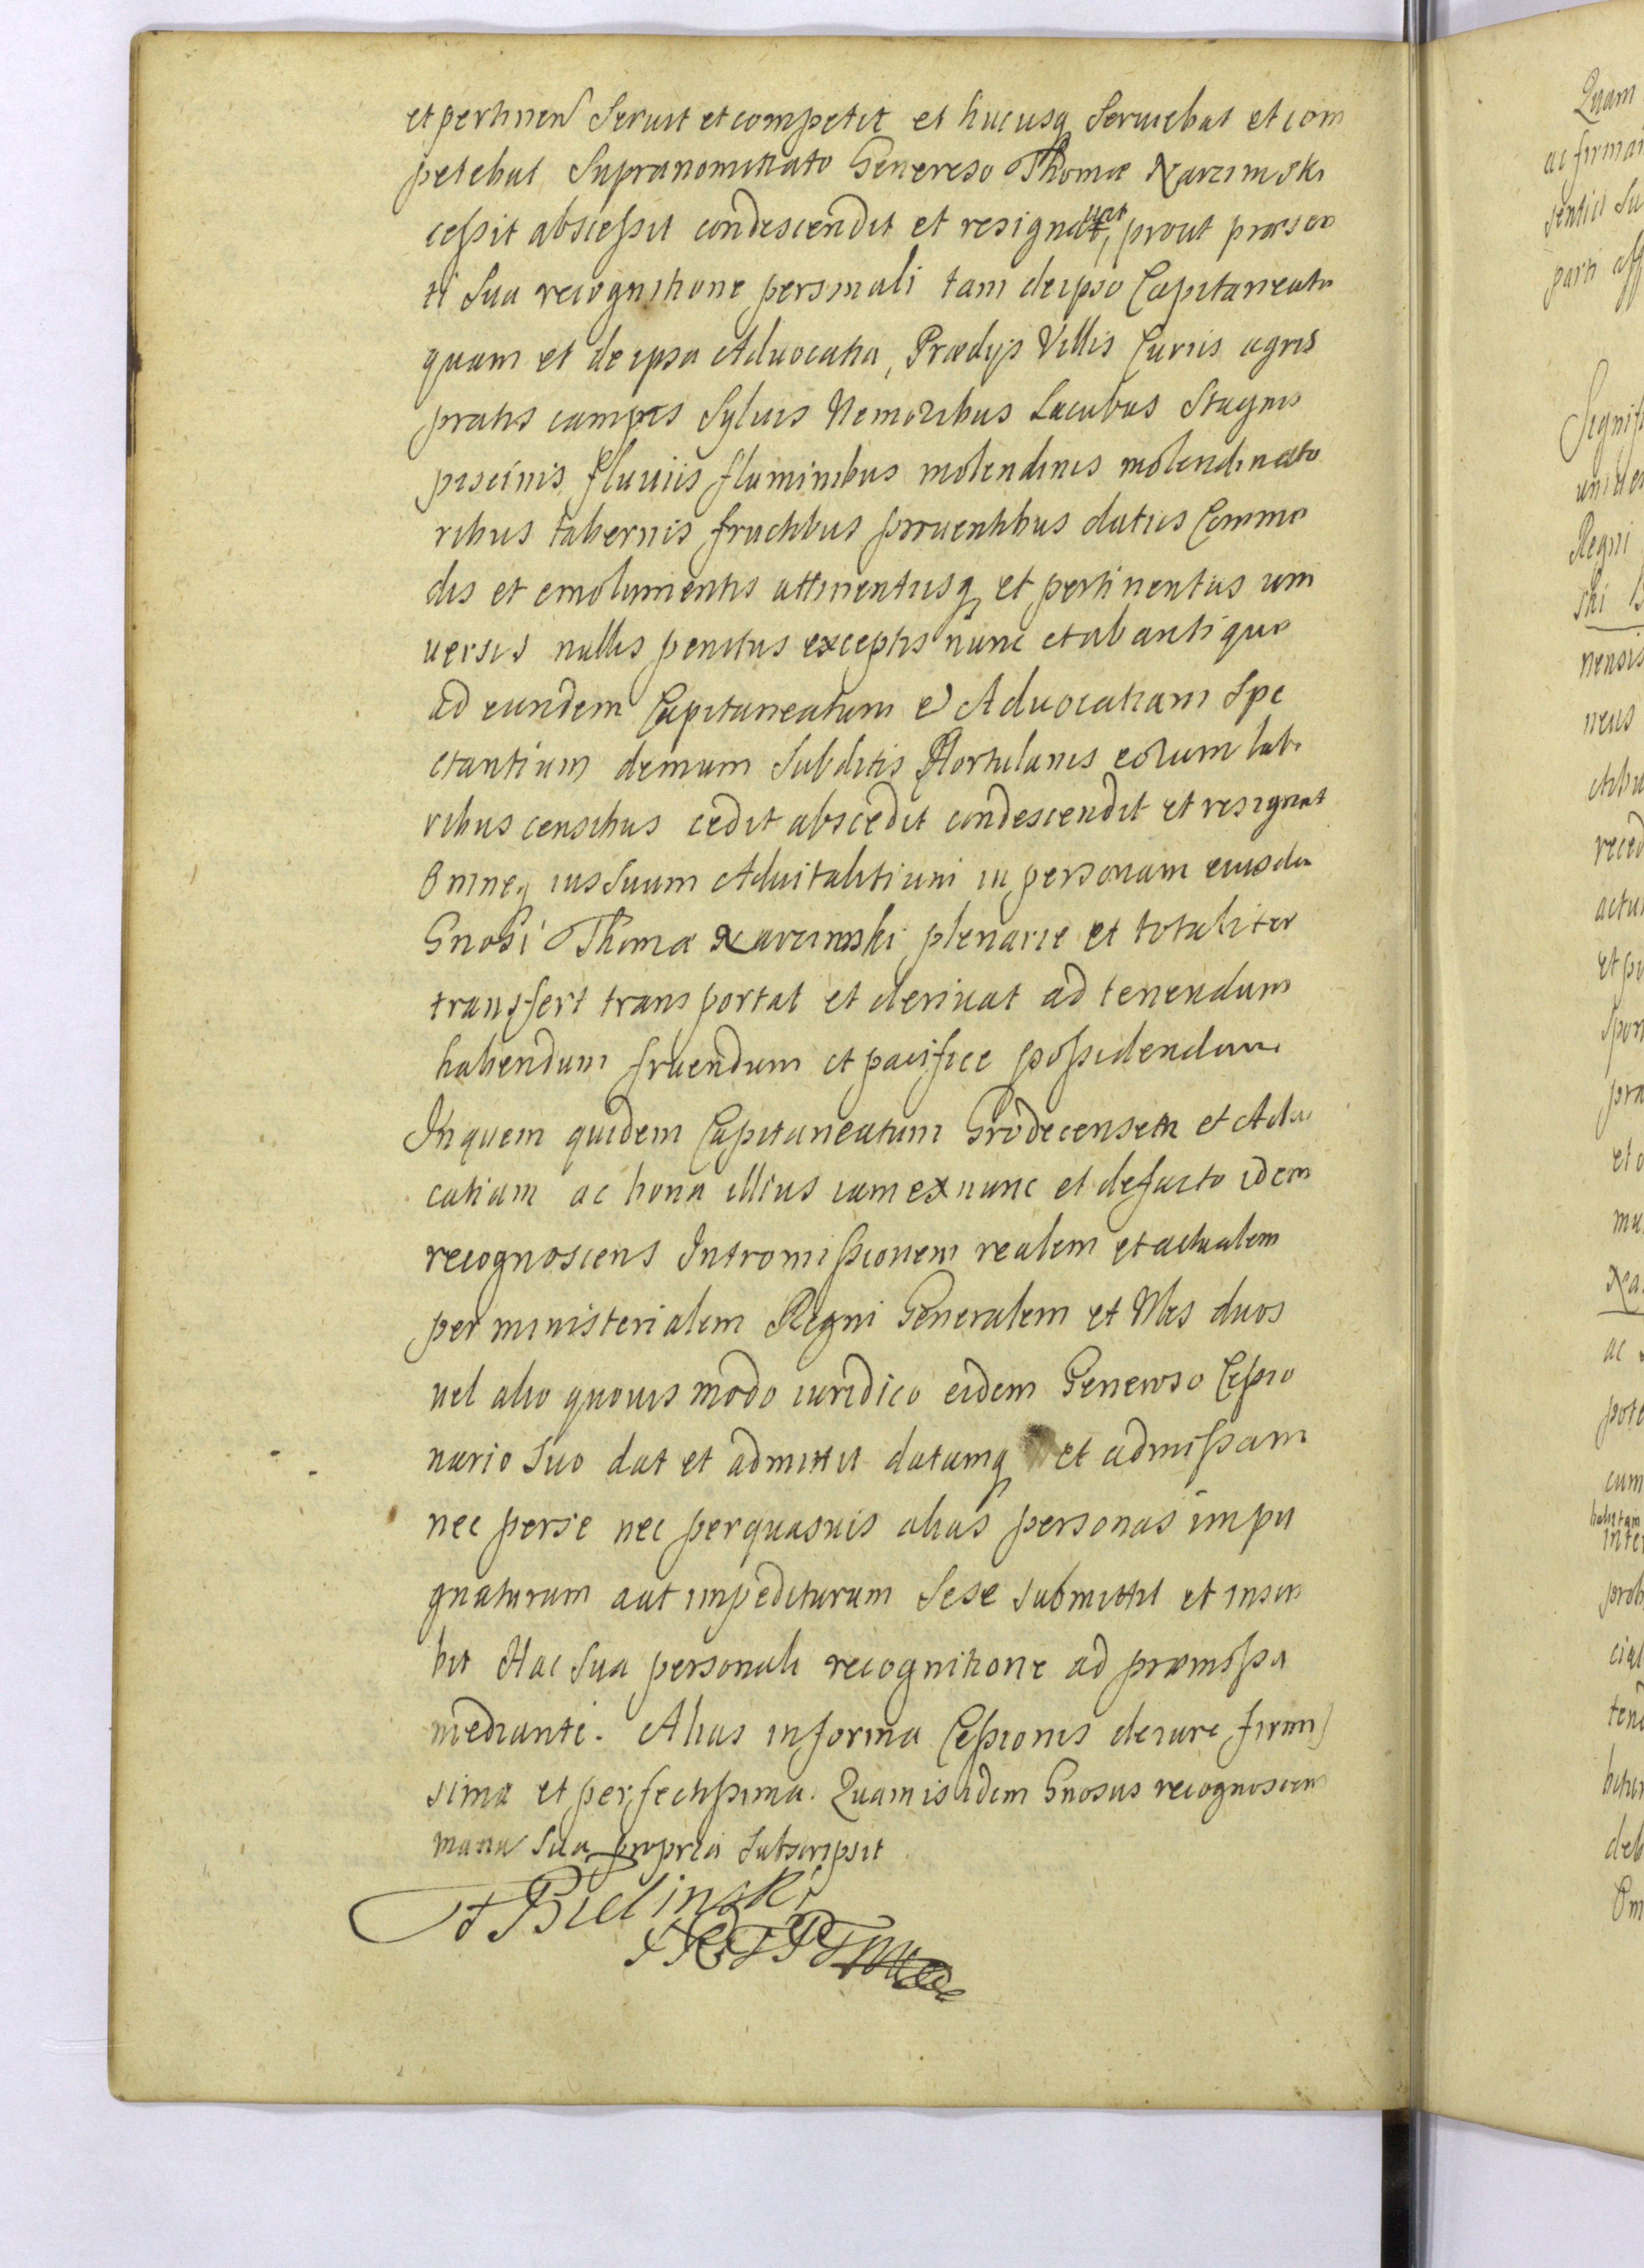 et pertinen Seruit et competit et hucusq Seruiebat et com
petebat Supranominato Generoso Thomæ Narzimski
cessit abscessit condescendit et resignauit, prout præsen
ti Sua recognitione personali tam de ipso Capitaneatu
quam et de ipsa Aduocatia, Prædijs Villis Curiis agris
pratis campis Syluis Nemoribus Lacubus Stagnis
piscinis fluuiis fluminibus molendinis molendinato
ribus tabernis fructibus prouentibus datiis Commo
dis et emolumentis attinentiisq et pertinentiis uni
uersis nullis penitus exceptis nunc et ab antiquo
ad eundem Capitaneatum et Aduocatiam Spe
ctantium demum Subditis Hortulanis eorum labo
ribus censibus cedit abscedit condescendit et resignat
Omneq ius Suum Aduitalitium in personam eiusdem
Gnosi Thomæ Narzimski plenarie et totaliter
transfert transportat et deriuat ad tenendum
habendum fruendum et pacifice possidendum
In quem quidem Capitaneatum Grodecensem et Aduo
catiam ac bona illius iam ex nunc et de facto idem
recognoscens Intromissionem realem et actualem
per ministerialem Regni Generalem et Nles duos
uel alio quouis modo iuridico eidem Generoso Cessio
nario suo dat et admittit datamq et admissam
nec per se nec per quasuis alias personas impu
gnaturum aut impediturum Sese submittit et inscri
bit Hac Sua personali recognitione ad præmissa
medianti. Alias in forma Cessionis de iure firmis
sima et perfectissima. Quam is idem Gnosus recognoscens
manu sua propria Subscripsit
Bielinski